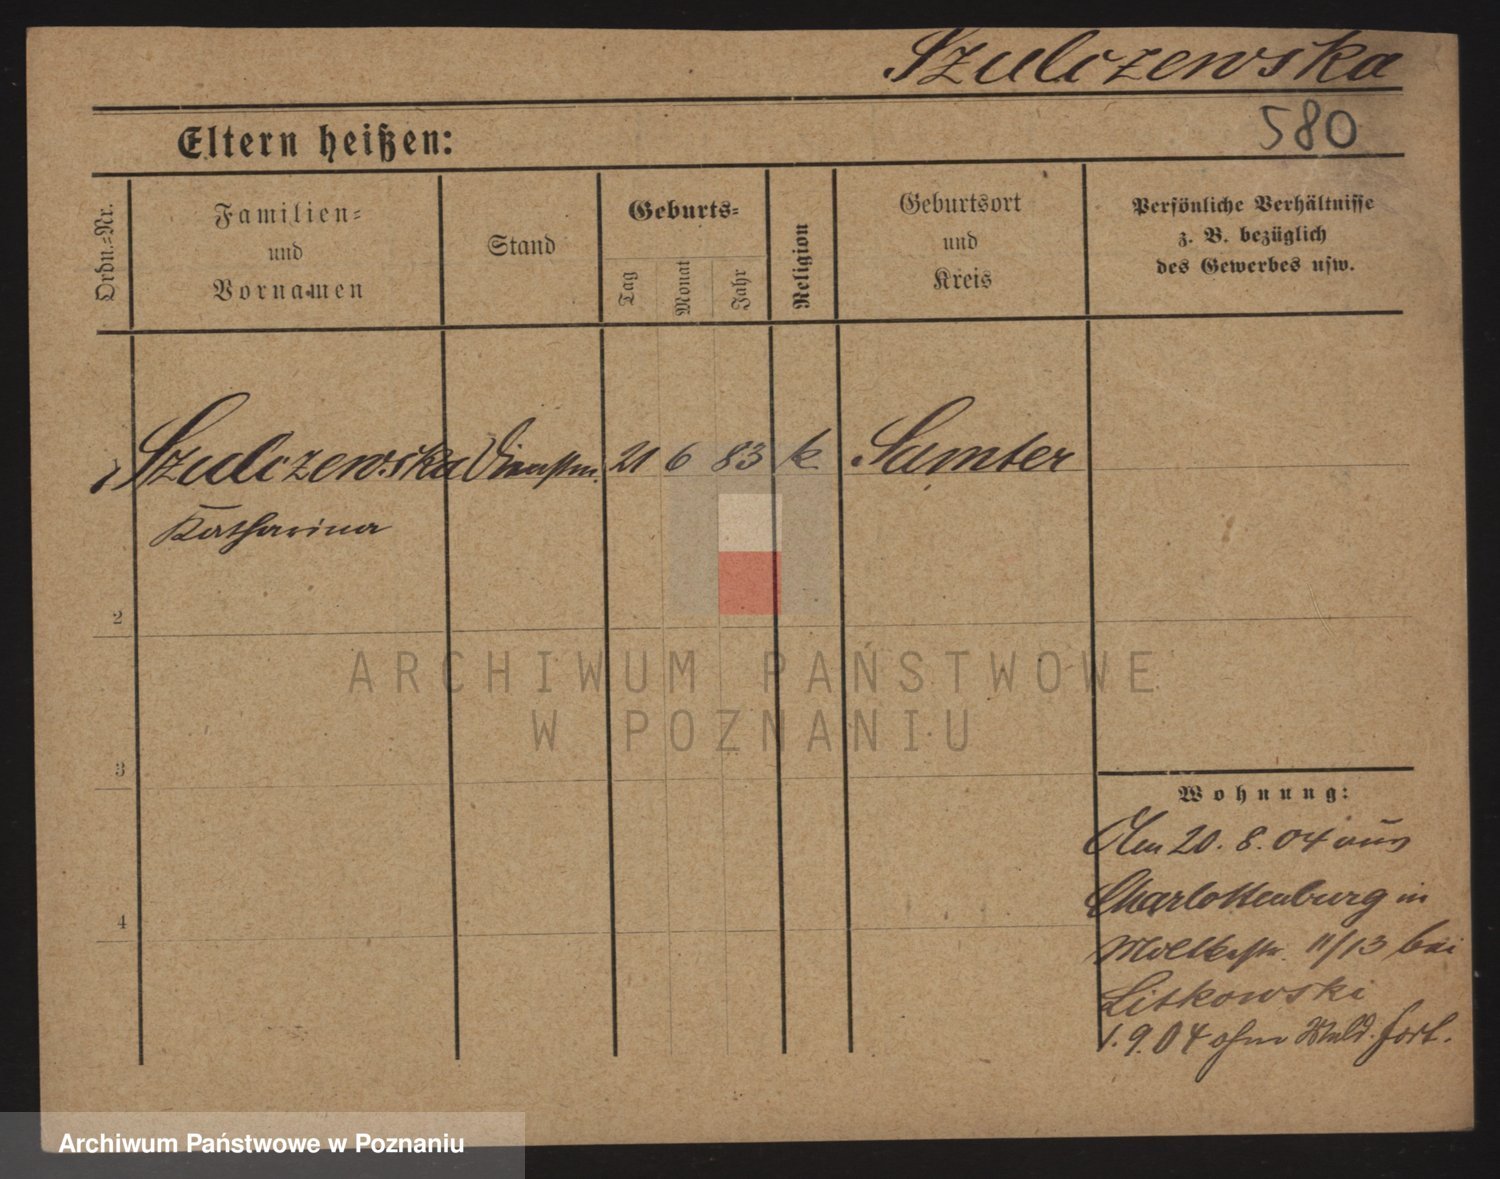 Szulczewska
580
Eltern heißen:
Ordn.=Nr.
Familien=
und
Vornamen
Stand
Geburts=
Tag
Monat
Jahr
Religion
Geburtsort
und
Kreis
Persönliche Verhältnisse
z. B. bezüglich
des Gewerbes usw.
1 Szulczewska Dienstm. 21 6 83 k. Samter
Katharina
2
ARCHIWUM PAŃSTWOWE
W POZNANIU
3
4
Wohnung:
Am 20. 8. 04 aus
Charlottenburg in
Moltkestr. 11/13 bei
Litkowski
1. 9. 04 ohne Meld. fort.
Archiwum Państwowe w Poznaniu